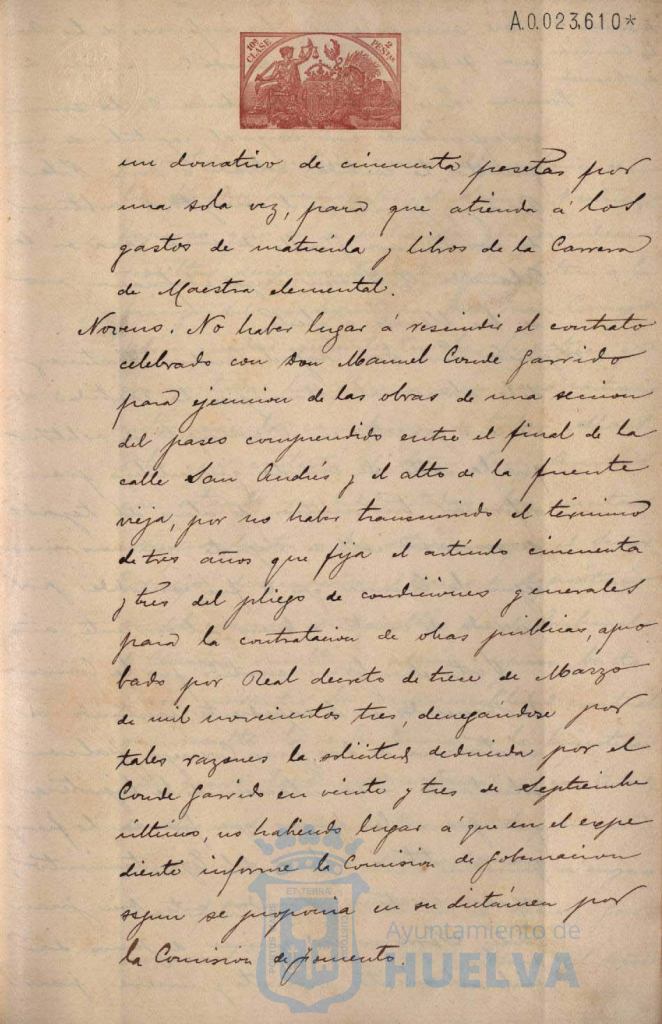 A.0.023.610*
10ª CLASE
2 PESETAS
un donativo de cincuenta pesetas por
una sola vez, para que atienda á los
gastos de matrícula y libros de la Carrera
de Maestra elemental.
Noveno. No haber lugar á rescindir el contrato
celebrado con Don Manuel Conde Garrido
para ejecucion de las obras de una seccion
del paseo comprendido entre el final de la
calle San Andrés y el alto de la fuente
vieja, por no haber transcurrido el término
de tres años que fija el artículo cincuenta
y tres del pliego de condiciones generales
para la contratacion de obras públicas, apro
bado por Real decreto de trece de Marzo
de mil novecientos tres, denegándose por
tales razones la solicitud deducida por el
Conde Garrido en veinte y tres de Septiembre
último, no habiendo lugar á que en el expe
diente informe la Comision de Gobernacion
segun se proponia en su dictámen por
la Comision de Fomento.
Ayuntamiento de
HUELVA